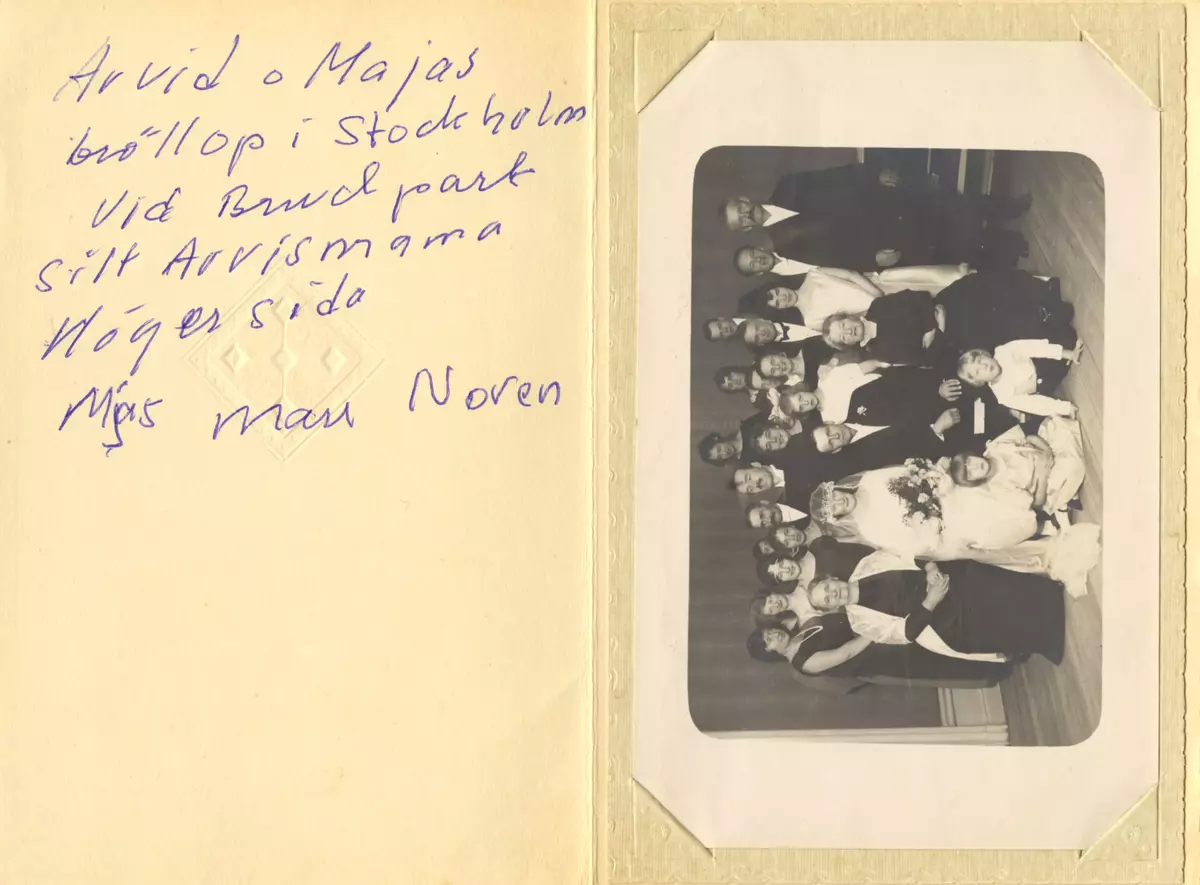 Arvid o Majas
bröllop i Stockholm
Vid Brud part
silt Arvismama
Höger sida
Noren